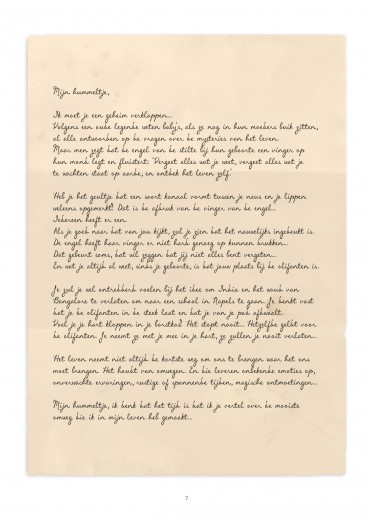 Mijn hummeltje,
Ik moet je een geheim verklappen...
Volgens een oude legende weten baby's, als ze nog in hun moeders buik zitten,
al alle antwoorden op de vragen over de mysteries van het leven.
Maar men zegt dat de engel van de stilte bij hun geboorte een vinger op
hun mond legt en fluistert: 'Vergeet alles wat je weet, vergeet alles wat je
te wachten staat op aarde, en ontdek het leven zelf.'
Heb je het geultje dat een soort kanaal vormt tussen je neus en je lippen
weleens opgemerkt? Dat is de afdruk van de vinger van de engel...
Iedereen heeft er een.
Als je goed naar dat van jou kijkt, zul je zien dat het nauwelijks ingedeukt is.
De engel heeft haar vinger er niet hard genoeg op kunnen drukken...
Dat gebeurt soms, dat wil zeggen dat jij niet alles bent vergeten...
En wat je altijd al weet, sinds je geboorte, is dat jouw plaats bij de olifanten is.
Je zul je wel ontredderd voelen bij het idee om India en het woud van
Bangalore te verlaten om naar een school in Napels te gaan. Je denkt vast
dat je de olifanten in de steek laat en dat je van je pad afdwaalt.
Voel je je hart kloppen in je borstkas? Het stopt nooit... Hetzelfde geldt voor
de olifanten. Je neemt ze met je mee in je hart, ze zullen je nooit verlaten...
Het leven neemt niet altijd de kortste weg om ons te brengen waar het ons
moet brengen. Het houdt van omwegen. En die leveren onbekende emoties op,
onverwachte ervaringen, rustige of spannende tijden, magische ontmoetingen...
Mijn hummeltje, ik denk dat het tijd is dat ik je vertel over de mooiste
omweg die ik in mijn leven heb gemaakt...
7